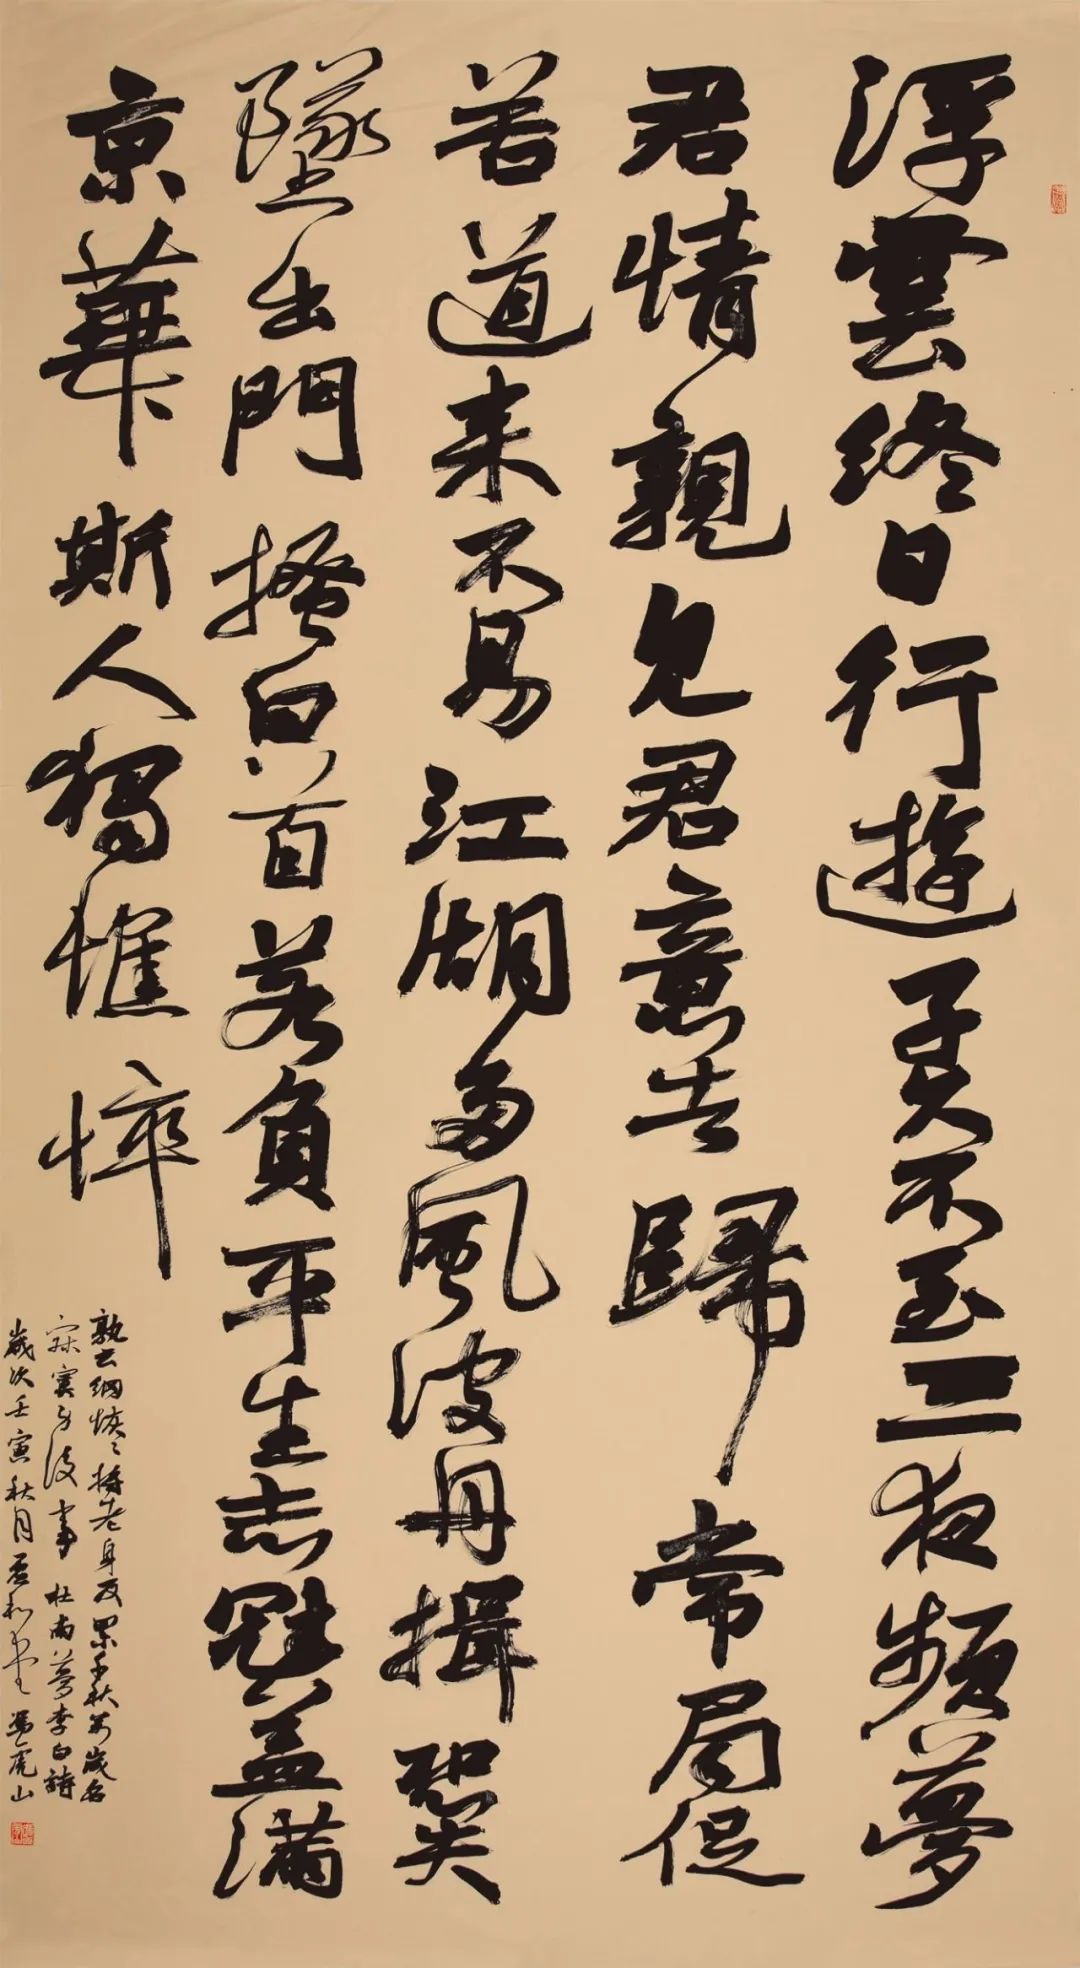 浮雲終日行遊子久不至三夜頻夢
君情親見君意告歸常局促
苦道来不易江湖多風波舟楫恐失
墜出門搔白首若負平生志冠盖滿
京華斯人獨憔悴
孰云網恢〻將老身反累千秋萬歲名
寂寞身後事 杜甫夢李白詩
歲次壬寅秋月 虎山